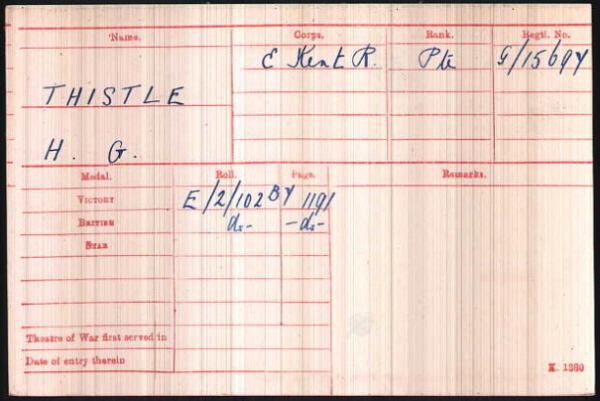 Name. Corps. Rank. Regtl. No.
E Kent R. Pte G/15694
THISTLE
H. G.
Medal. Roll. Page. Remarks.
VICTORY E/2/102 BY 1191
BRITISH do- -do-
STAR
Theatre of War first served in
Date of entry therein
K. 1380